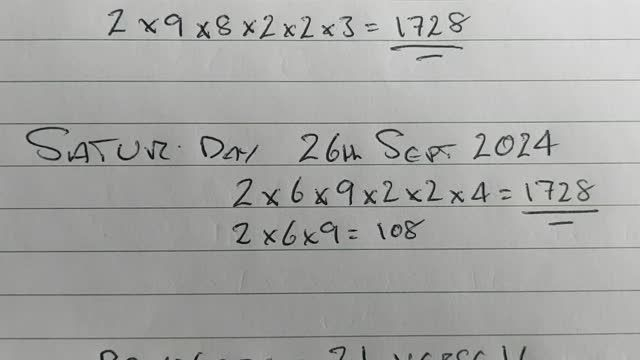 2 × 9 × 8 × 2 × 2 × 3 = 1728
SATUR. DAY 26th SEPT. 2024
2 × 6 × 9 × 2 × 2 × 4 = 1728
2 × 6 × 9 = 108